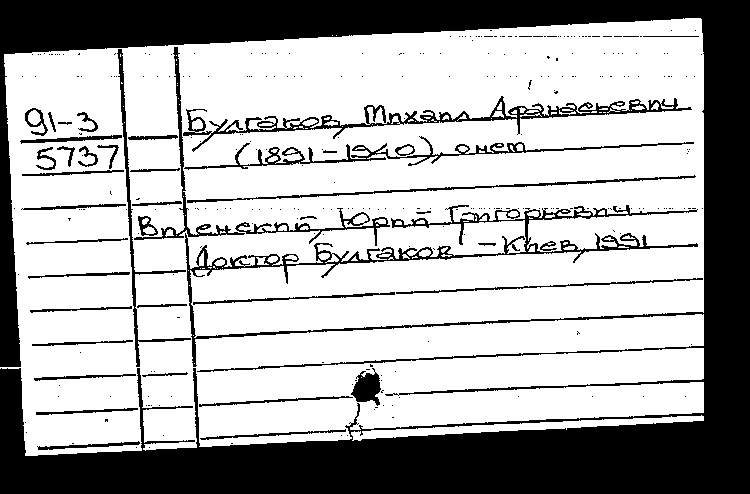 91-3 Булгаков, Михаил Афанасьевич
5737 (1891-1940), о нем
Виленский, Юрий Григорьевич
Доктор Булгаков - Киев, 1991